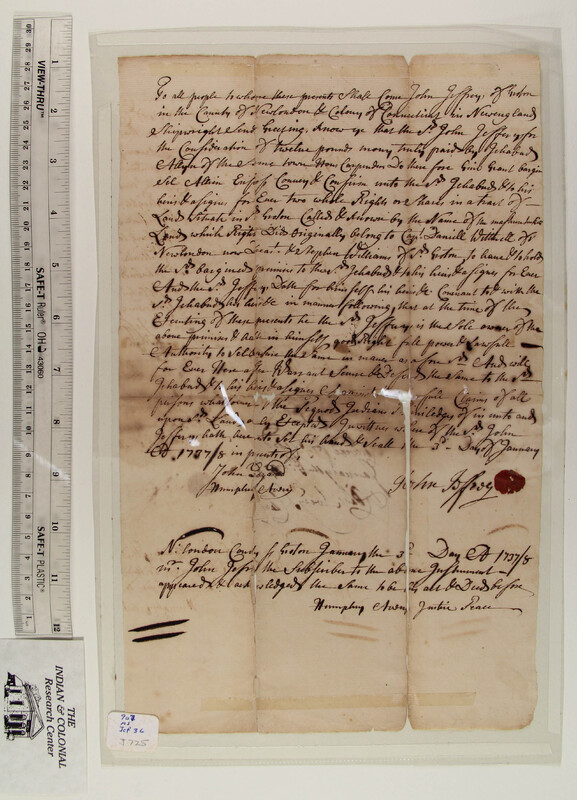 To all people to whome these presents Shall Come John Jeffrey, of Groton
in the County of Newlondon & Colony of Connecticut in Newengland
Shipwright Send Greeting, Know ye that the Sd. John Jeffery for
the Consideration of Twelve pounds mony truly paid by Jehabud
of the Same town Hous Carpender Do there fore Give Grant bargin
Sel Alien Enfeof Convey & Confirm unto the Sd. Jehabud & to his
heirs & asigns for Ever two whole Rights or Shares in a tract of
Land Situate in Sd. Groton Called & known by the Name of the
Land which Rights Did originally belong to Capt. Daniell Witherell of
Newlondon now Decst. & Stephen Williams of Sd. Groton To have & to hold
the Sd. bargined premises to the Sd. Jehabud & to his heirs & asignes for Ever
And the Sd. Jeffery Doth for himself his heirs & Covenant to & with the
Sd. Jehabud his heirs in manner following, that at the time of the
Executing of these presents he the Sd. Jeffery is the Sole owner of the
above premises & hath in himself good Right full power & Lawfull
Authority to Sel the Same in maner as afore Sd. And will
for Ever Here after Warrant Secure & Defend the Same to the Sd.
Jehabud & to his heirs & asignes against Claims of all
persons whatsoever the Pequod Indians Priviledges of in unto and
upon Sd. Land only Excepted In wittnes whereof the Sd. John
Jeffery hath here unto Set his hand & Seall the 3d. Day of January
AD 1737/8 in presents of
John
Humphry Avery
John Jeffrey
N: london County ss Groton January the 3d Day AD 1737/8
mr. John the Subscriber to the above Instrument
appeared & acknowledged the Same to be his act & Deed before
Humphry Avery Justice Peace
VIEW-THRU™
SAFE-T Ruler®
OHC® 43060
SAFE-T PLASTIC®
30 29 28 27 26 25 24 23 22 21 20 19 18 17 16 15 14 13 12 11 10 9 8 7 6 5 4 3 2 1
1 2 3 4 5 6 7 8 9 10 11 12
THE
INDIAN & COLONIAL
Research Center
J725